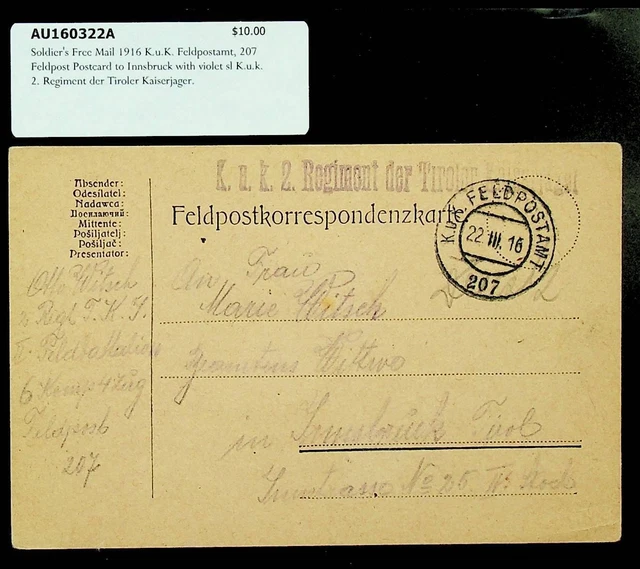 AU160322A $10.00
Soldier's Free Mail 1916 K.u.K. Feldpostamt, 207
Feldpost Postcard to Innsbruck with violet sl K.u.k.
2. Regiment der Tiroler Kaiserjager.
K. u. k. 2. Regiment der Tiroler
Absender:
Odesílatel:
Nadawca:
Посилаючий:
Mittente:
Pošiljatelj:
Pošiljač:
Presentator:
Feldpostkorrespondenzkarte
K.u.K. FELDPOSTAMT
22.III.16
207
Otto Witsch
2 Regt T. K. J.
6 Komp 4 Zug
Feldpost
207
An Frau
Marie Witsch
Beamtens Witwe
in Innsbruck Tirol
Innstrasse No 25 II. Stock